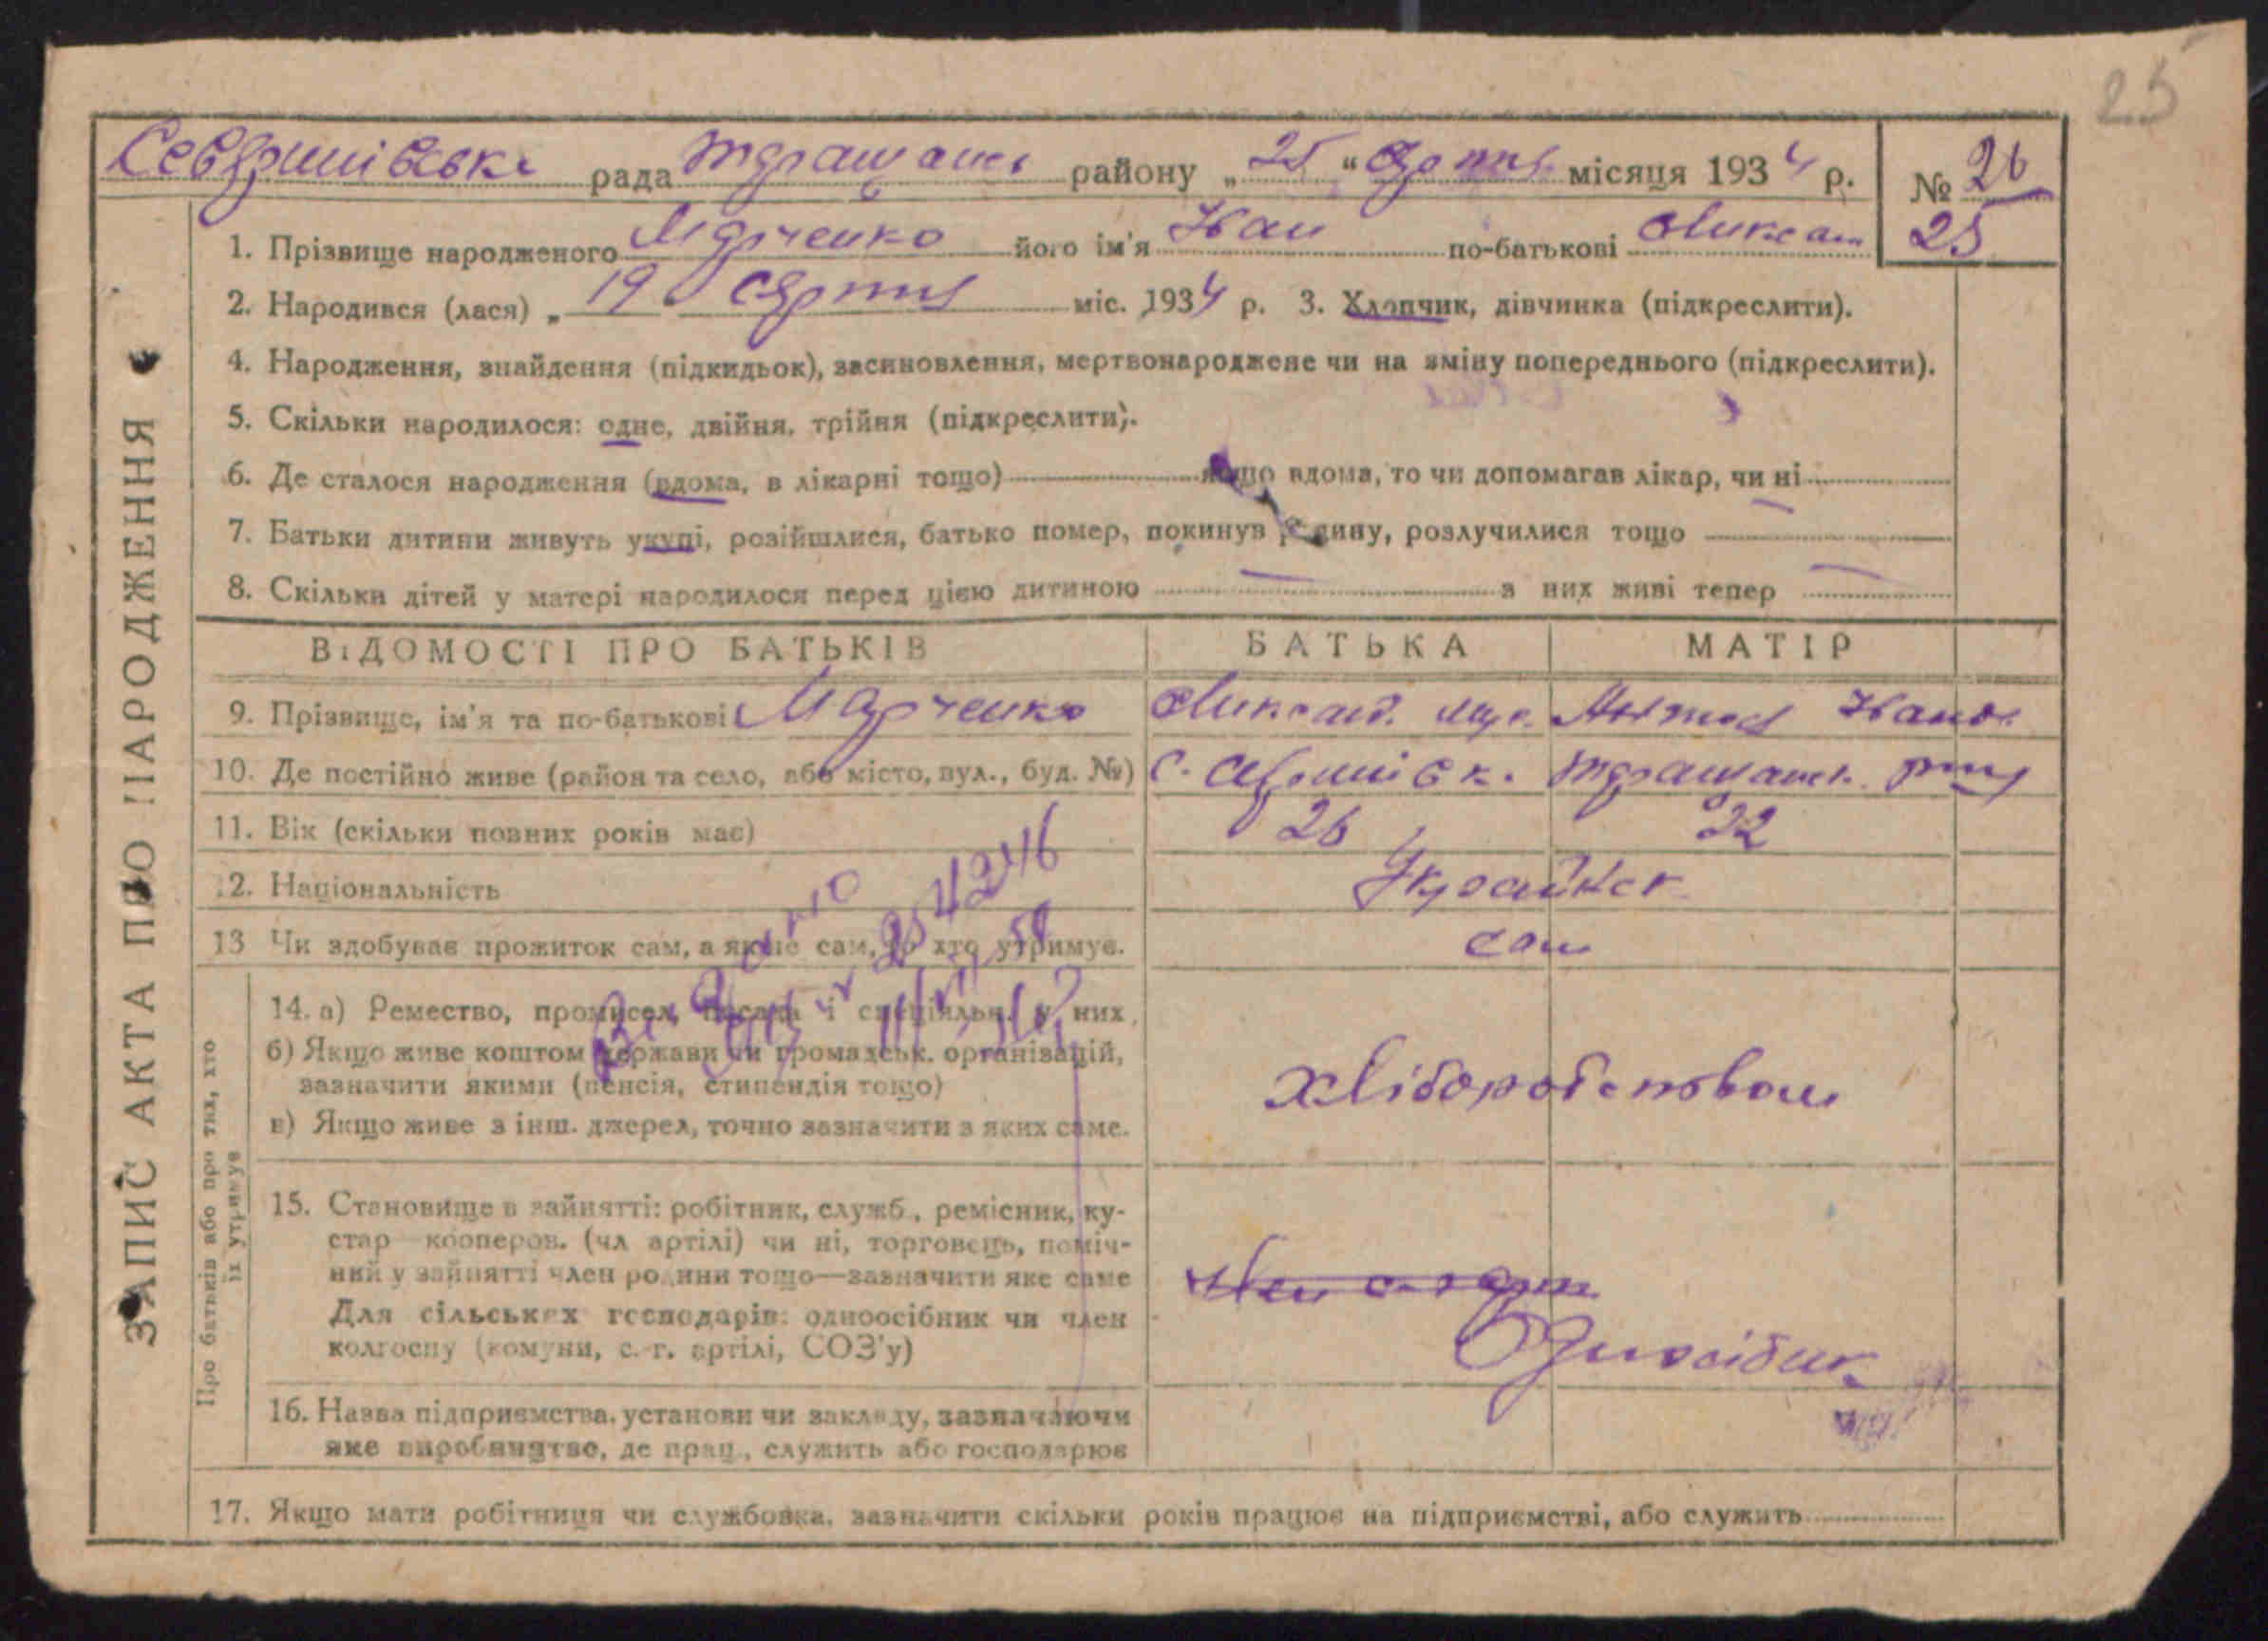 25
рада району „25“ серпня місяця 1934 р. № 26
1. Прізвище народженого Марченко його ім'я Іван по-батькові Оликсан 25
2. Народився (лася) „19 серпня міс. 1934 р. 3. Хлопчик, дівчинка (підкреслити).
4. Народження, знайдення (підкидьок), засиновлення, мертвонароджене чи на зміну попереднього (підкреслити).
5. Скільки народилося: одне, двійня, трійня (підкреслити).
6. Де сталося народження (вдома, в лікарні тощо) якщо вдома, то чи допомагав лікар, чи ні
7. Батьки дитини живуть укупі, розійшлися, батько помер, покинув родину, розлучилися тощо
8. Скільки дітей у матері народилося перед цією дитиною з них живі тепер
ВІДОМОСТІ ПРО БАТЬКІВ БАТЬКА МАТІР
9. Прізвище, ім'я та по-батькові Марченко Оликсанд.
10. Де постійно живе (район та село, або місто, вул., буд. №) с.
11. Вік (скільки повних років має) 26 22
12. Національність Українск
13 Чи здобуває прожиток сам, а якще сам, то хто утримує. сам
14. а) Ремество, промисел, посада і спеціяльн. у них,
б) Якщо живе коштом держави чи громадськ. організацій,
зазначити якими (пенсія, стипендія тощо)
в) Якщо живе з інш. джерел, точно зазначити з яких саме.
15. Становище в зайнятті: робітник, служб., ремісник, ку-
стар кооперов. (чл артілі) чи ні, торговець, поміч-
ний у зайнятті член родини тощо—зазначити яке саме
Для сільських господарів: одноосібник чи член
колгоспу (комуни, с.-г. артілі, СОЗ'у)
Одноосібник
16. Назва підприємства, установи чи закладу, зазначаючи
яке виробництво, де прац., служить або господарює
17. Якщо мати робітниця чи службовка, зазначити скільки років працює на підприємстві, або служить
ЗАПИС АКТА ПРО НАРОДЖЕННЯ
Про батьків або про тих, хто
їх утримує